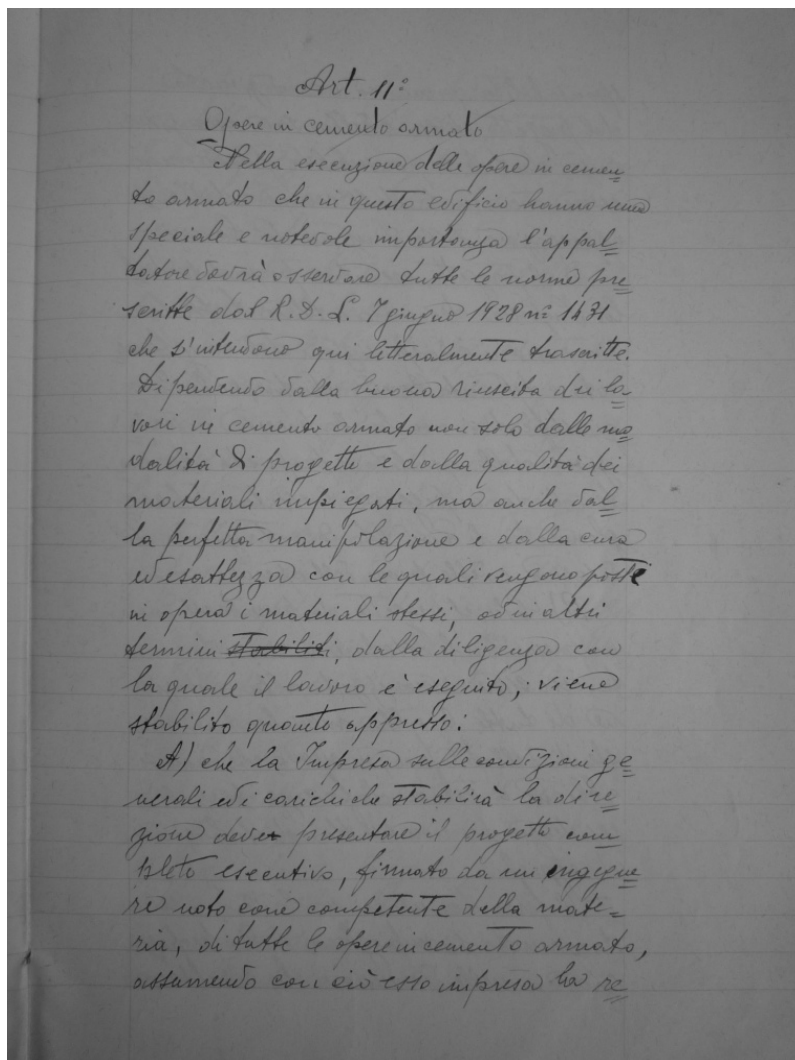 Art. 11º
Opere in cemento armato
Nella esecuzione delle opere in cemen=
to armato che in questo edificio hanno una
speciale e notevole importanza l'appal=
tatore dovrà osservare tutte le norme pre=
scritte dal R. D. L. 7 giugno 1928 nº 1431
che s'intendono qui letteralmente trascritte.
Dipendendo dalla buona riuscita dei la=
vori in cemento armato non solo dalle mo=
dalità di progetto e dalla qualità dei
materiali impiegati, ma anche dal=
la perfetta manipolazione e dalla cura
ed esattezza con le quali vengono poste
in opera i materiali stessi, od in altri
termini stabiliti, dalla diligenza con
la quale il lavoro è eseguito, viene
stabilito quanto appresso:
A) che la Impresa sulle condizioni ge=
nerali ed i carichi che stabilirà la dire=
zione deve presentare il progetto com=
pleto esecutivo, firmato da un ingegne=
re noto come competente della mate=
ria, di tutte le opere in cemento armato,
assumendo con ciò essa impresa la re=